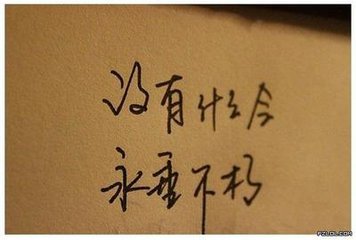 没有什么会
永垂不朽
PZLOL.COM